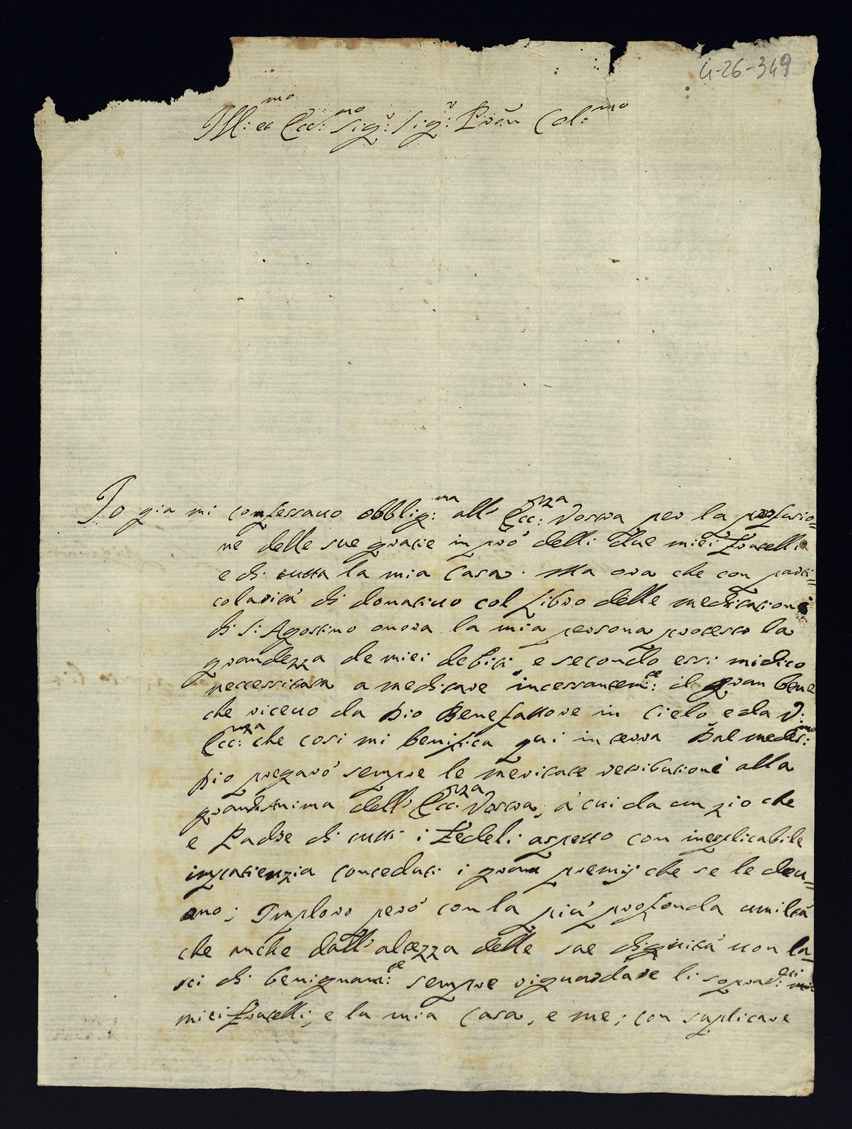 4-26-349
Ill:mo et Ecc:mo Sig:r Sig:r Pron Col:mo
Io gia mi confessauo obblig:ma all' Ecc:nza Vostra per la profusio=
ne delle sue gratie in pro' delli due miei Fratelli
e di tutta la mia Casa. Ma ora che con parti=
colarita' di donatiuo col Libro delle meditationi
di S: Agostino onora la mia persona protesto la
grandezza de miei debiti, e secondo essi mi dico
neccessitata a meditare incessantem:te il gran bene
che riceuo da Dio Benefattore in Cielo, e da V:
Ecc:nza che cosi mi benifica qui in terra Dal medes:mo
Dio pregaro' sempre le meritate retributioni alla
grand.ma anima dell' Ecc:nza Vostra, a' cui da un zio che
e Padre di tutti i Fedeli aspetto con inesplicabile
impatienzia conceduti i gran premij che se le deu=
ono; Imploro pero' con la piu' profonda umilta'
che anche dall' altezza delle sue dignita' non la=
sci di benignam:te sempre riguardare li soprad:eti
miei Fratelli, e la mia Casa, e me; con suplicare